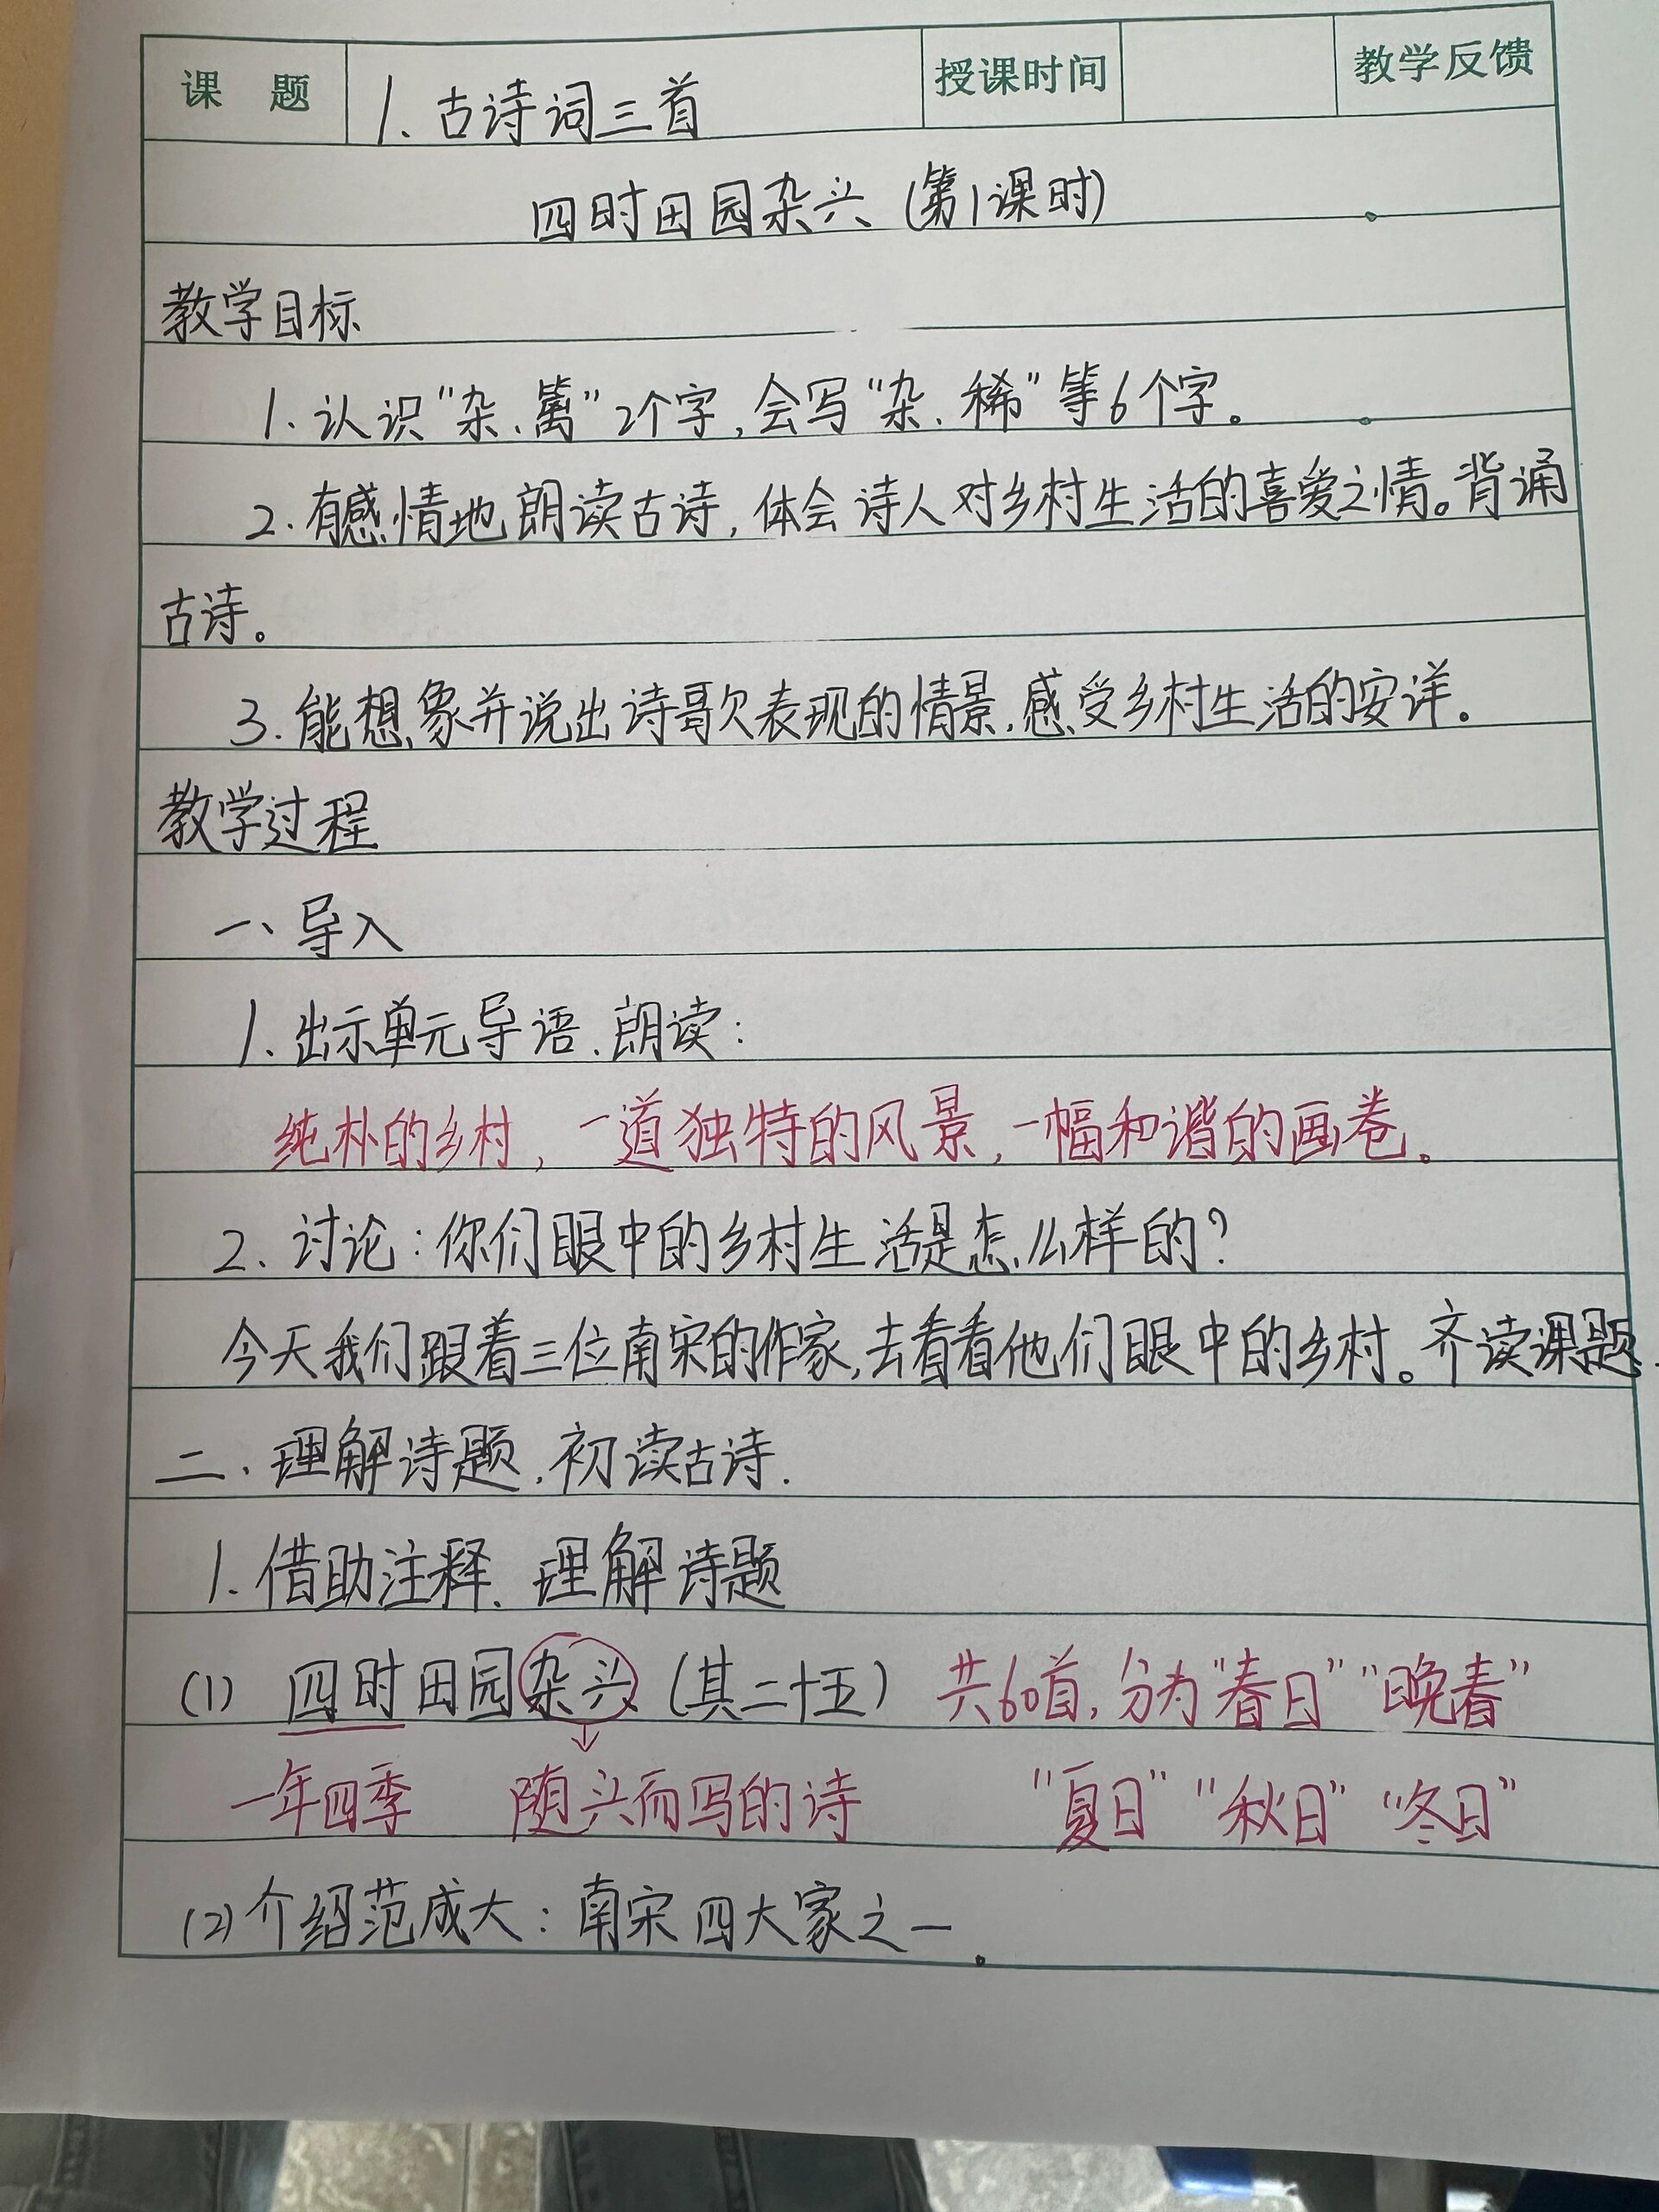 课 题 1. 古诗词三首 授课时间 教学反馈
四时田园杂兴 (第1课时)
教学目标
1. 认识“杂、篱”2个字,会写“杂、稀”等6个字。
2. 有感情地朗读古诗,体会诗人对乡村生活的喜爱之情。背诵
古诗。
3. 能想象并说出诗歌表现的情景,感受乡村生活的安详。
教学过程
一、导入
1. 出示单元导语、朗读:
纯朴的乡村,一道独特的风景,一幅和谐的画卷。
2. 讨论:你们眼中的乡村生活是怎么样的?
今天我们跟着三位南宋的作家,去看看他们眼中的乡村。齐读课题.
二、理解诗题,初读古诗.
1. 借助注释、理解诗题
(1) 四时田园杂兴 (其二十五) 共60首,分为“春日”“晚春”
一年四季 随兴而写的诗 “夏日”“秋日”“冬日”
(2) 介绍范成大:南宋四大家之一.